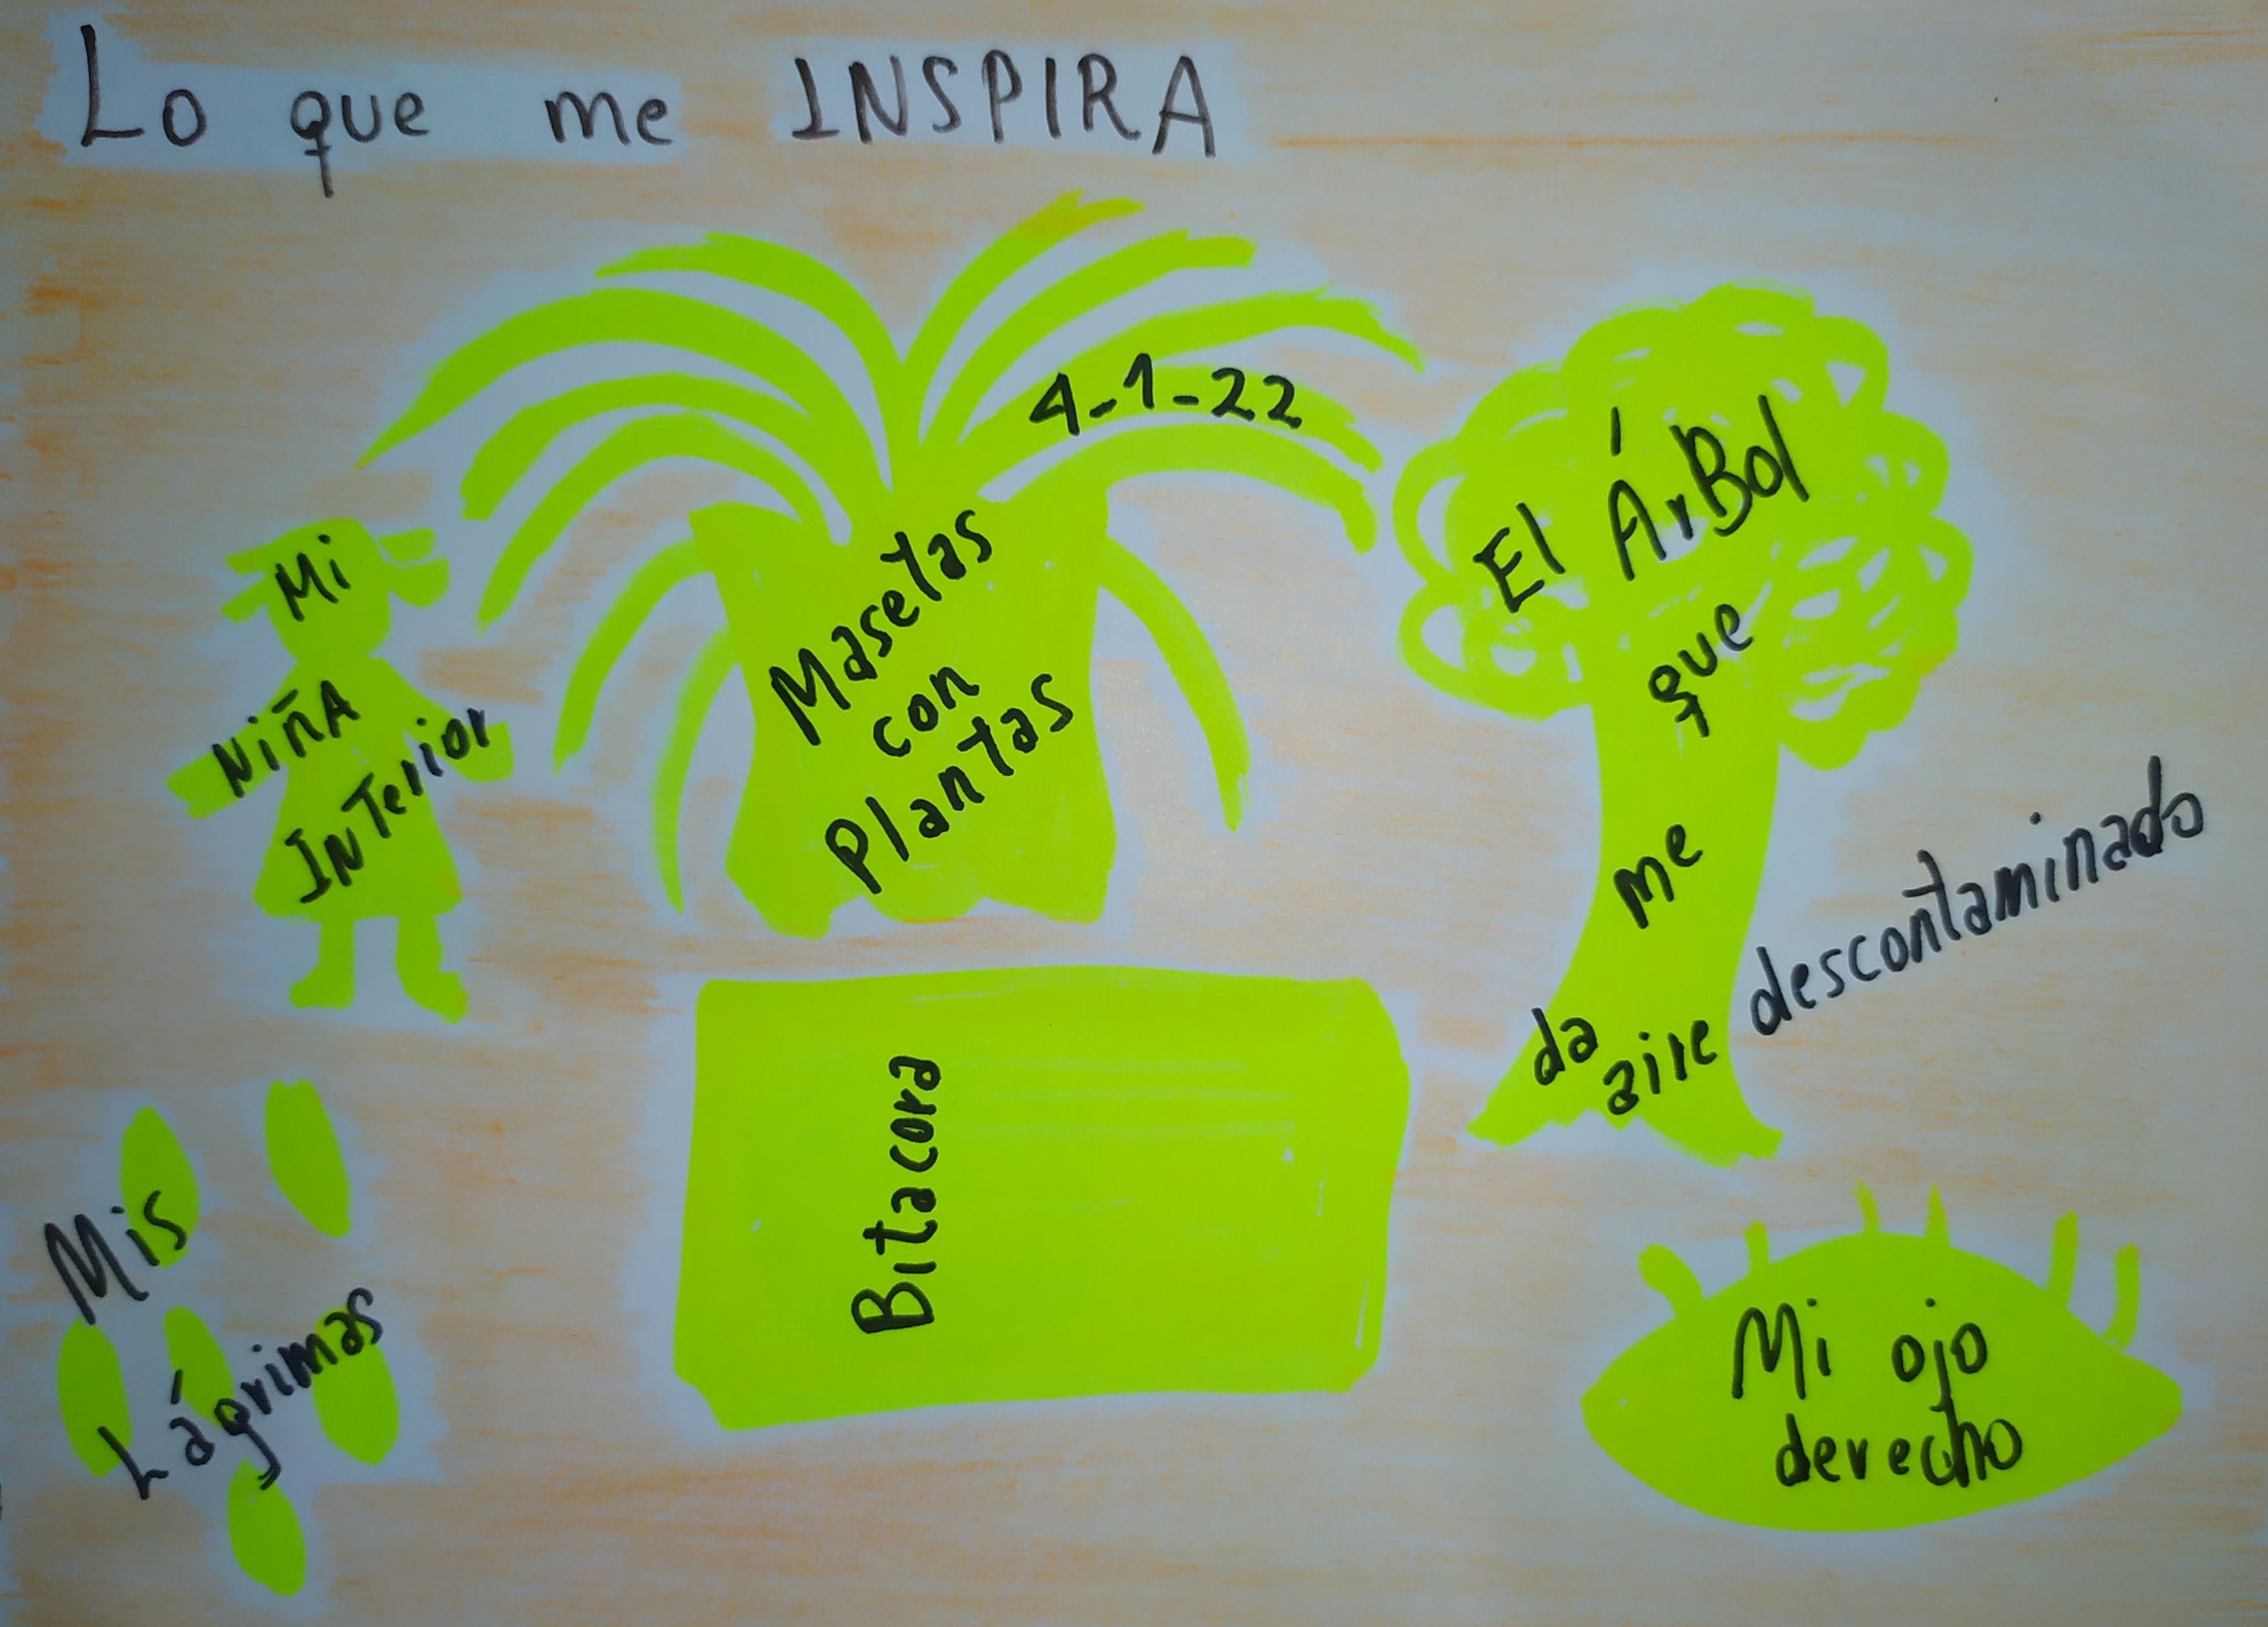 Lo que me INSPIRA
4-1-22
Mi
NiñA
INTerior
Masetas
con
Plantas
El ÁrBol
que
me
da
aire descontaminado
Bitacora
Mis
Lágrimas
Mi ojo
derecho